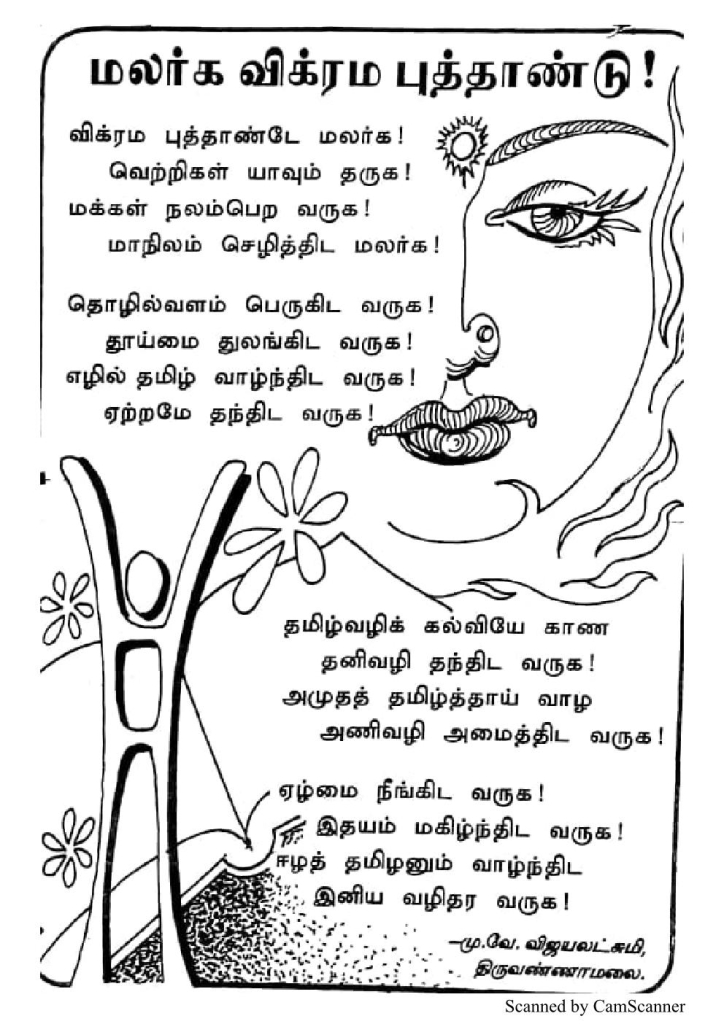 மலர்க விக்ரம புத்தாண்டு !
விக்ரம புத்தாண்டே மலர்க !
வெற்றிகள் யாவும் தருக !
மக்கள் நலம்பெற வருக !
மாநிலம் செழித்திட மலர்க !
தொழில்வளம் பெருகிட வருக !
தூய்மை துலங்கிட வருக !
எழில் தமிழ் வாழ்ந்திட வருக !
ஏற்றமே தந்திட வருக !
தமிழ்வழிக் கல்வியே காண
தனிவழி தந்திட வருக !
அமுதத் தமிழ்த்தாய் வாழ
அணிவழி அமைத்திட வருக !
ஏழ்மை நீங்கிட வருக !
இதயம் மகிழ்ந்திட வருக !
ஈழத் தமிழனும் வாழ்ந்திட
இனிய வழிதர வருக !
–மு.வே. விஜயலட்சுமி,
திருவண்ணாமலை.
Scanned by CamScanner